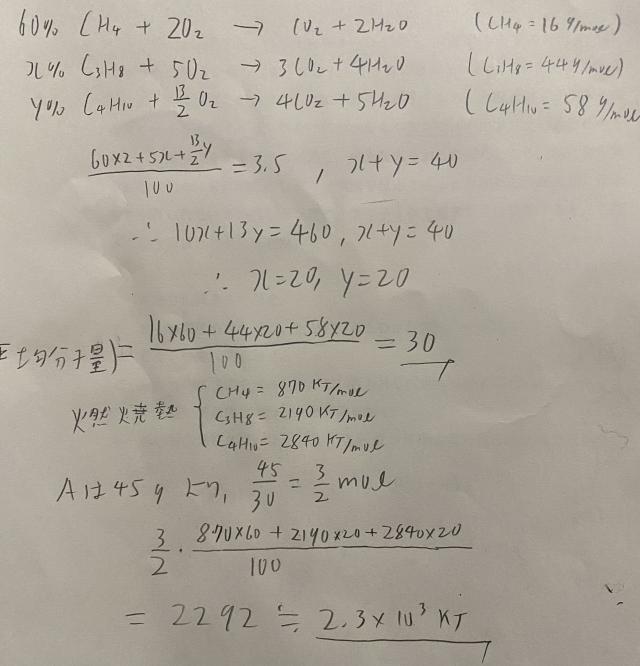 60% CH4 + 2O2 → CO2 + 2H2O (CH4 = 16 g/mol)
x% C3H8 + 5O2 → 3CO2 + 4H2O (C3H8 = 44 g/mol)
y% C4H10 + 13/2 O2 → 4CO2 + 5H2O (C4H10 = 58 g/mol)
(60×2 + 5x + 13/2 y)/100 = 3.5 , x+y = 40
∴ 10x+13y = 460, x+y = 40
∴ x=20, y=20
平均分子量) = (16×60 + 44×20 + 58×20)/100 = 30
燃焼熱 { CH4 = 870 KJ/mol
C3H8 = 2190 KJ/mol
C4H10 = 2840 KJ/mol
Aは45g より, 45/30 = 3/2 mol
3/2 · (870×60 + 2190×20 + 2840×20)/100
= 2292 ≒ 2.3×10³ KJ